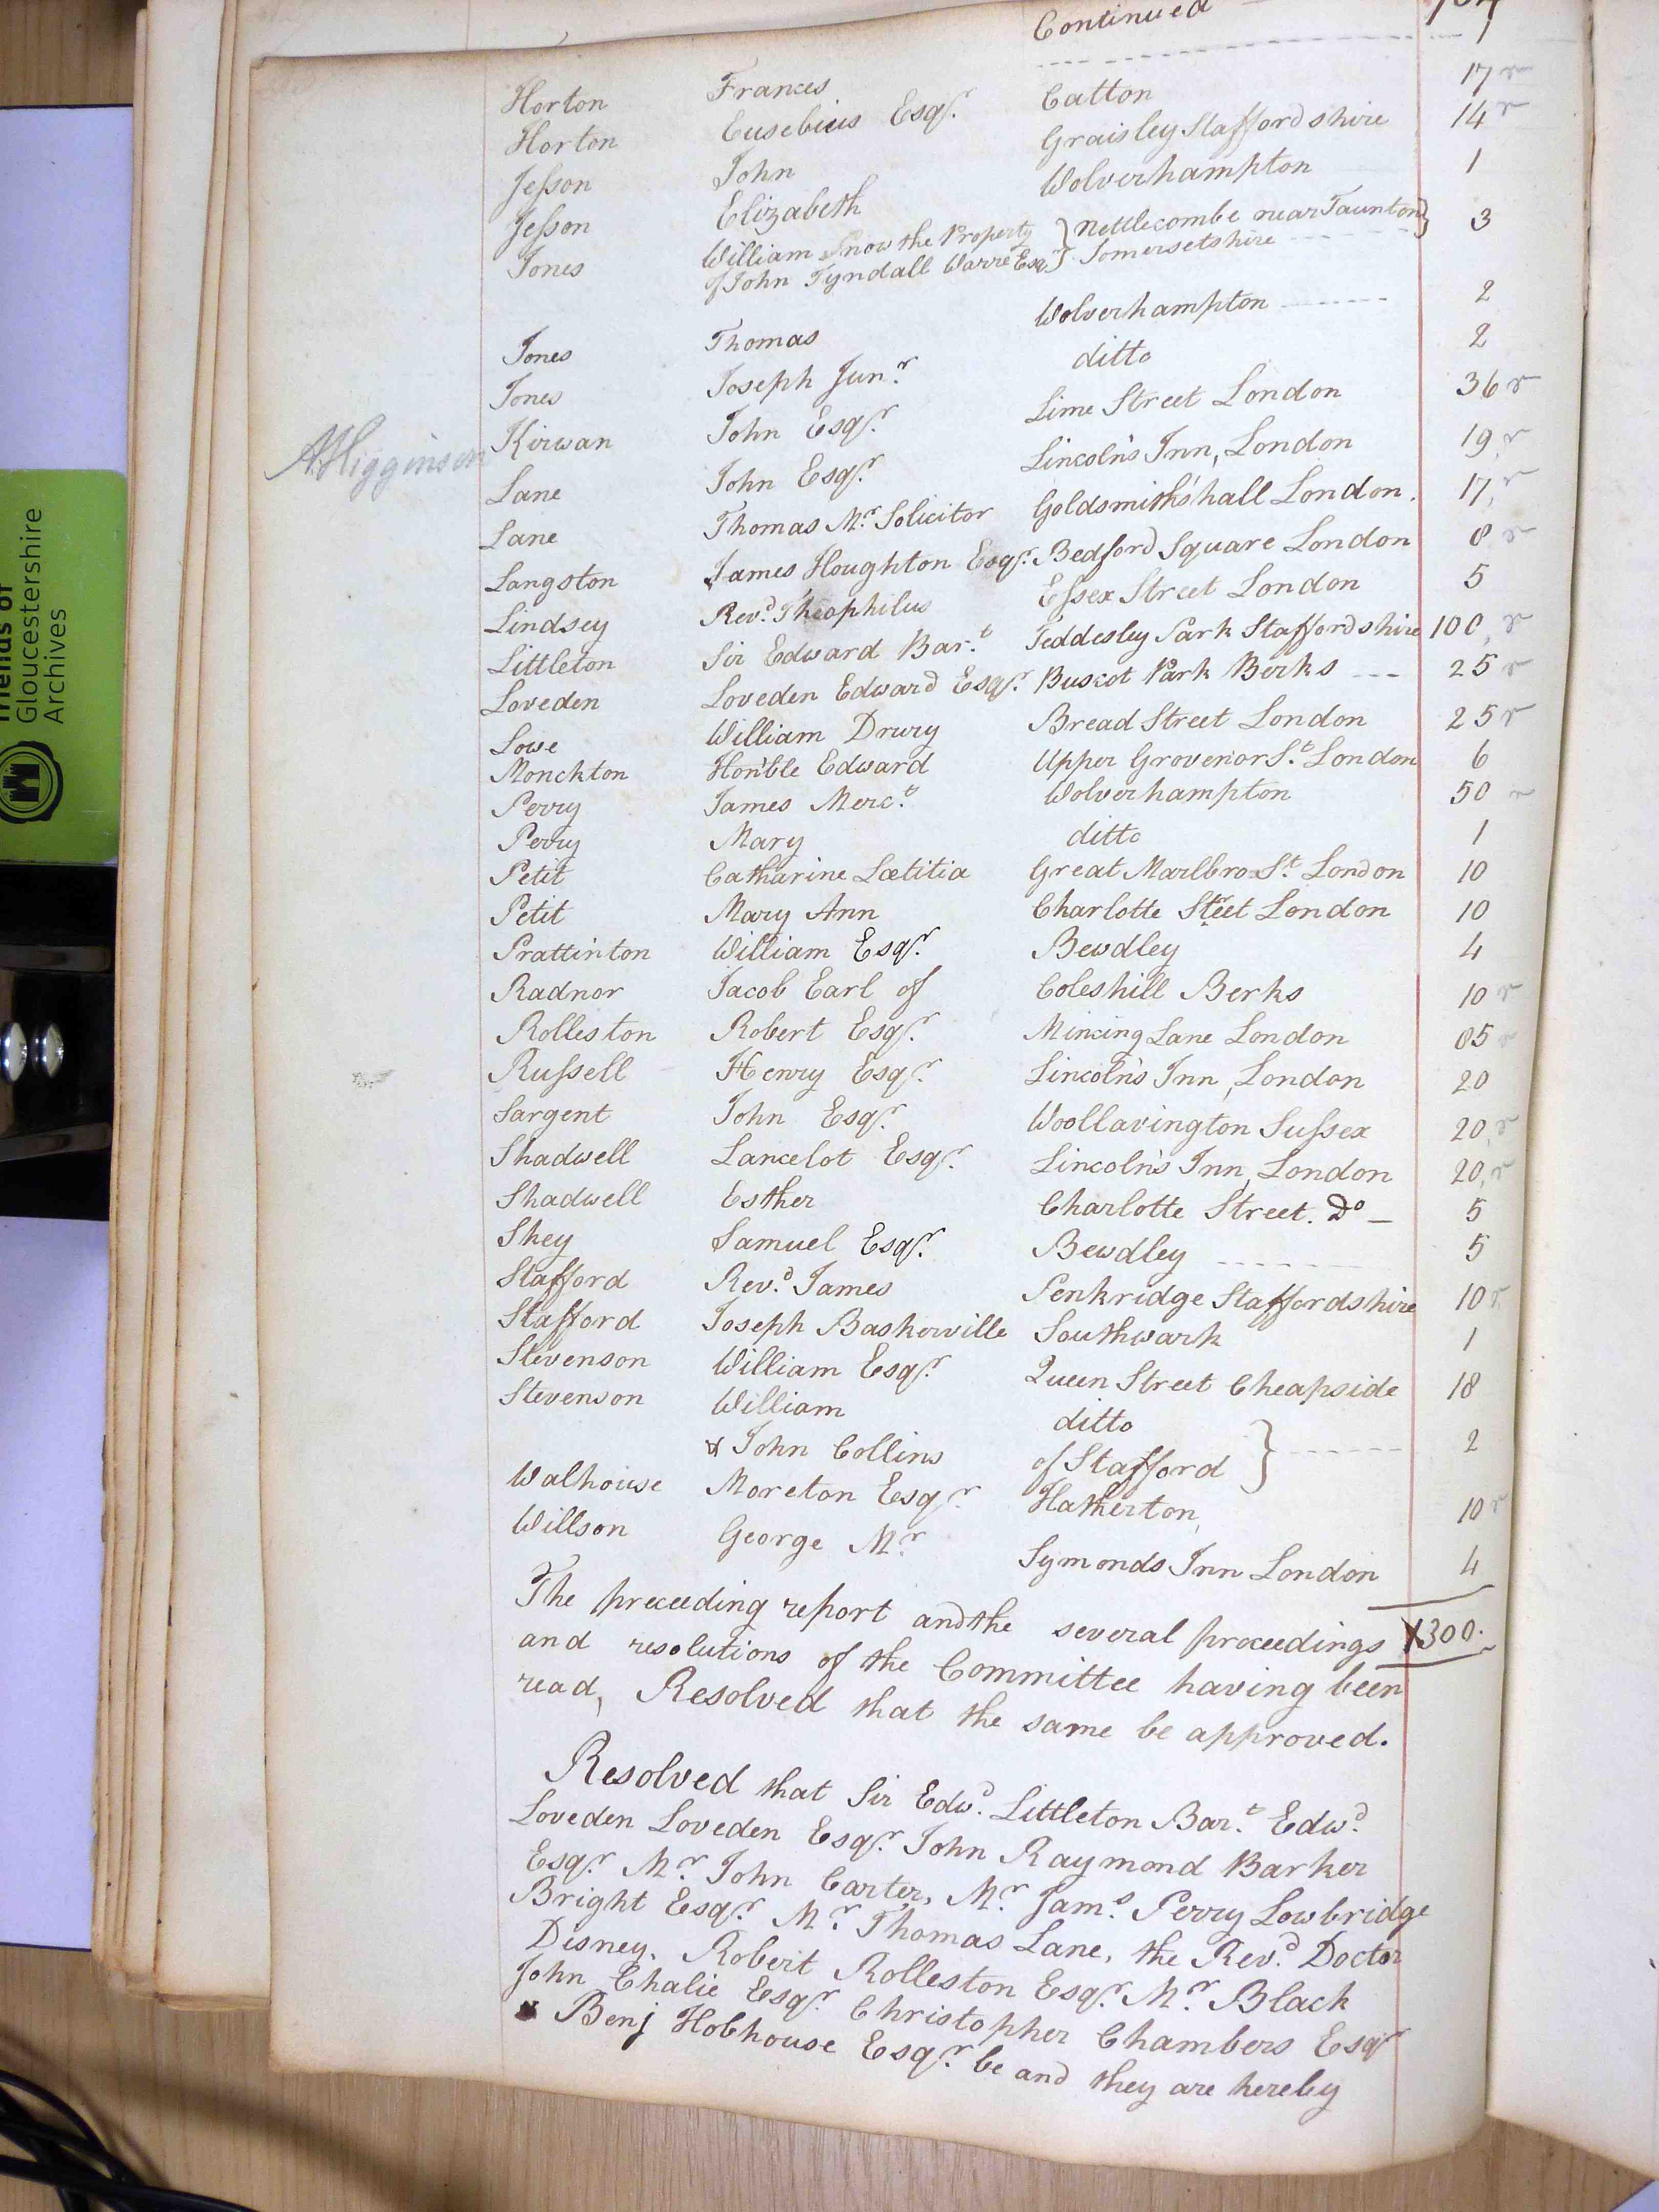 Continued
Horton Frances 1
Horton Eusebius Esqr. Catton 17 r
Jesson John Graisley Staffordshire 14 r
Jesson Elizabeth Wolverhampton 1
Jones William Snow the Property } Nettlecombe near Taunton } 3
of John Tyndall Warre Esqr. } Somersetshire
Jones Thomas Wolverhampton 2
Jones Joseph Junr. ditto 2
A Higginson
Kirwan John Esqr. Lime Street London 36 r
Lane John Esqr. Lincoln's Inn, London 19 r
Lane Thomas Mr. Solicitor Goldsmith's hall London. 17 r
Langston James Houghton Esqr. Bedford Square London 8 r
Lindsey Revd. Theophilus Essex Street London 5
Littleton Sir Edward Bart. Teddesley Park Staffordshire 100 r
Loveden Loveden Edward Esqr. Buscot Park Berks 25 r
Lowe William Drury Bread Street London 25 r
Monckton Hon'ble Edward Upper Grovenor St. London 6
Perry James Merct. Wolverhampton 50 r
Perry Mary ditto 1
Petit Catharine Lætitia Great Marlbro St. London 10
Petit Mary Ann Charlotte Street London 10
Prattinton William Esqr. Bewdley 4
Radnor Jacob Earl of Coleshill Berks 10 r
Rolleston Robert Esqr. Mincing Lane London 85 r
Russell Henry Esqr. Lincoln's Inn, London 20
Sargent John Esqr. Woollavington Sussex 20 r
Shadwell Lancelot Esqr. Lincoln's Inn, London 20 r
Shadwell Esther Charlotte Street. Do 5
Skey Samuel Esqr. Bewdley 5
Stafford Revd. James Penkridge Staffordshire 10 r
Stafford Joseph Baskerville Southwark 1
Stevenson William Esqr. Queen Street Cheapside 18
Stevenson William ditto
& John Collins of Stafford } 2
Walhouse Moreton Esqr. Hatherton, 10 r
Willson George Mr. Symonds Inn London 4
The preceeding report and the several proceedings 1300.
and resolutions of the Committee having been
read, Resolved that the same be approved.
Resolved that Sir Edwd. Littleton Bart. Edwd.
Loveden Loveden Esqr. John Raymond Barker
Esqr. Mr. John Carter, Mr. Jams. Perry Lowbridge
Bright Esqr. Mr. Thomas Lane, the Revd. Doctor
Disney. Robert Rolleston Esqr. Mr. Black
John Chalie Esqr. Christopher Chambers Esqr
& Benj Hobhouse Esqr. be and they are hereby
Friends of
Gloucestershire
Archives